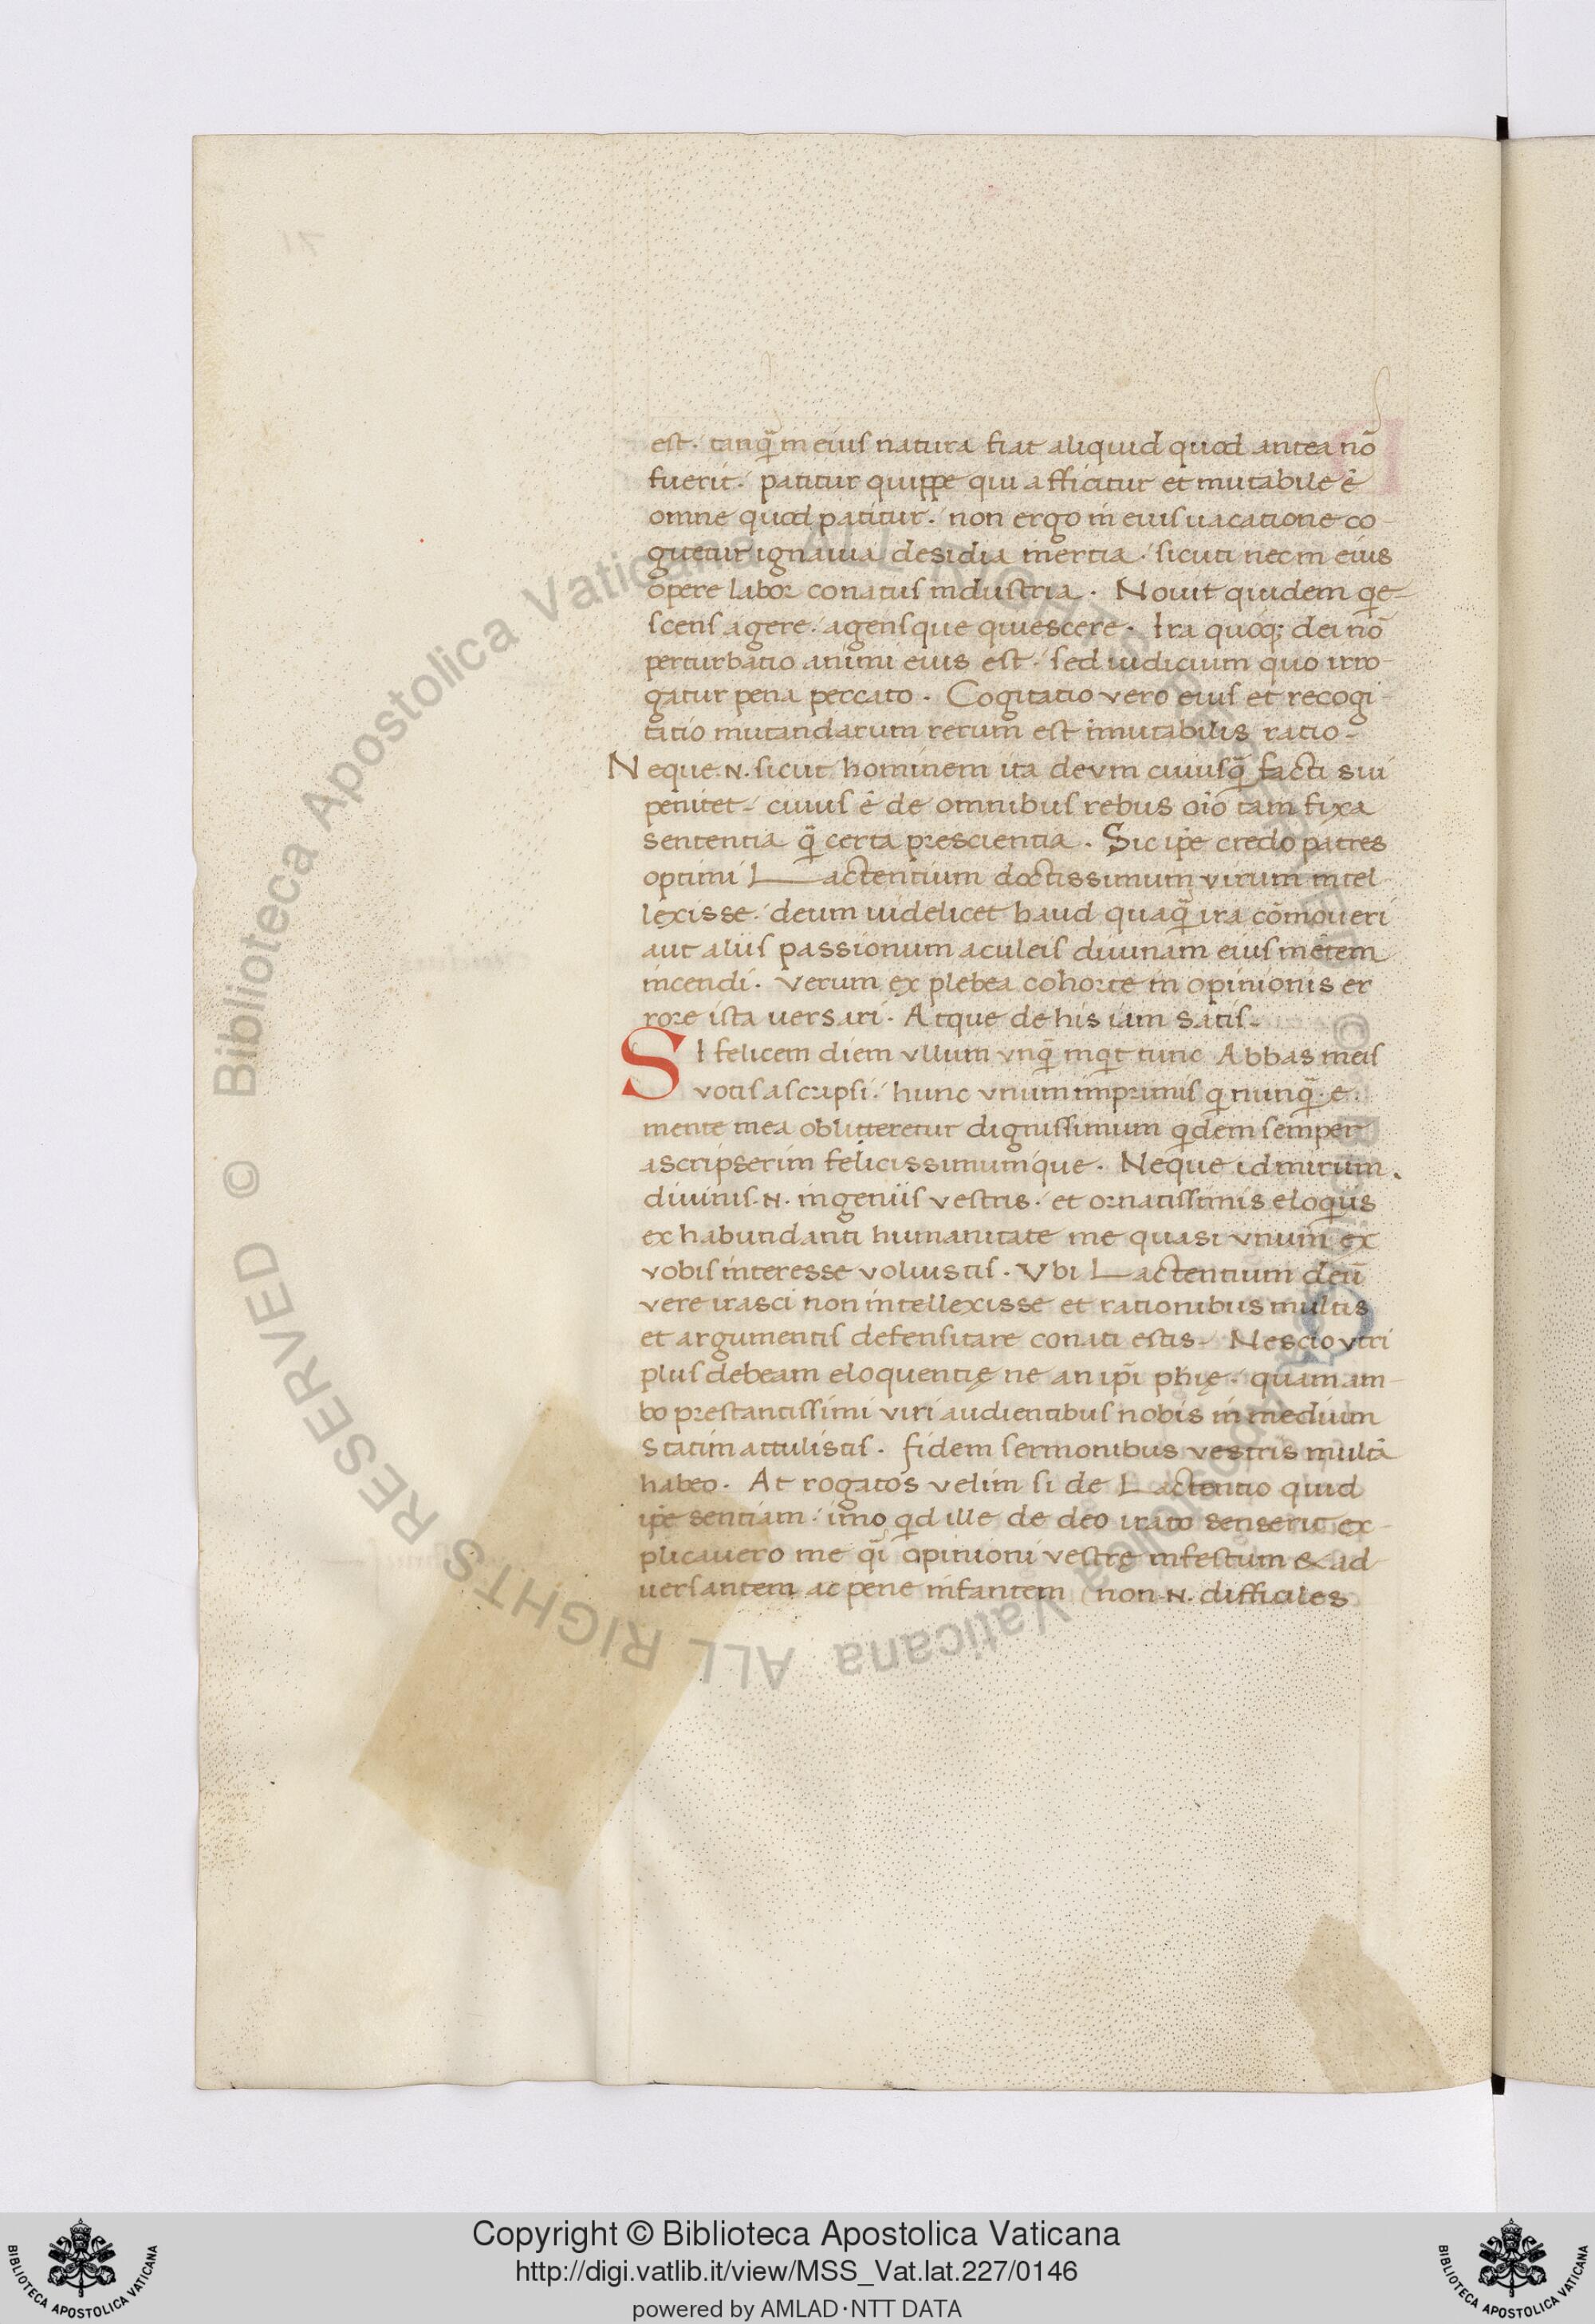 est. tanq̄ in eius natura fiat aliquid quod antea nō
fuerit. patitur quippe qui afficitur et mutabile ē
omne quod patitur. non ergo in eius uacatione co
gitetur ignauia desidia inertia. sicuti nec in eius
opere labor conatus industria. Nouit quidem qe-
scens agere. agensque quiescere. Ira quoq; dei nō
perturbatio animi eius est. sed iudicium quo irro-
gatur pena peccato. Cogitatio vero eius et recogi-
tatio mutandarum rerum est īmutabilis ratio.
Neque .N. sicut hominem ita deum cuiusq̄ facti sui
penitet. cuius ē de omnibus rebus oīo tam fixa
sententia q̄ certa prescientia. Sic ip̄e credo patres
optimi Lactentium doctissimum virum intel-
lexisse. deum uidelicet haud quaq̄ ira cōmoueri
aut aliis passionum aculeis diuinam eius mētem
incendi. verum ex plebea cohorte in opinionis er
rore ista uersari. Atque de his iam satis.
SI felicem diem vllum vnq̄ inqt tunc Abbas meis
votis ascripsi. hunc vnum imprimis qi nunq̄ e
mente mea oblitteretur dignissimum qdem semper
ascripserim felicissimumque. Neque id mirum.
diuinis .N. ingeniis vestris. et ornatissimis eloqiis
ex habundanti humanitate me quasi vnum ex
vobis interesse voluistis. Vbi Lactentium deū
vere irasci non intellexisse et rationibus multis
et argumentis defensitare conati estis. Nescio vtri
plus debeam eloquentię ne an ip̄i phię. quam am-
bo prestantissimi viri audientibus nobis in medium
statim attulistis. fidem sermonibus vestris multā
habeo. At rogatos velim si de Lactentio quid
ip̄e sentiam. imo qd ille de deo irato senserit ex-
plicauero me qī opinioni vestrę infestum & ad
uersantem ac pene infantem (non .N. difficiles
Copyright © Biblioteca Apostolica Vaticana
http://digi.vatlib.it/view/MSS_Vat.lat.227/0146
powered by AMLAD·NTT DATA
BIBLIOTECA APOSTOLICA VATICANA
BIBLIOTECA APOSTOLICA VATICANA
© Biblioteca Apostolica Vaticana ALL RIGHTS RESERVED
© Biblioteca Apostolica Vaticana ALL RIGHTS RESERVED